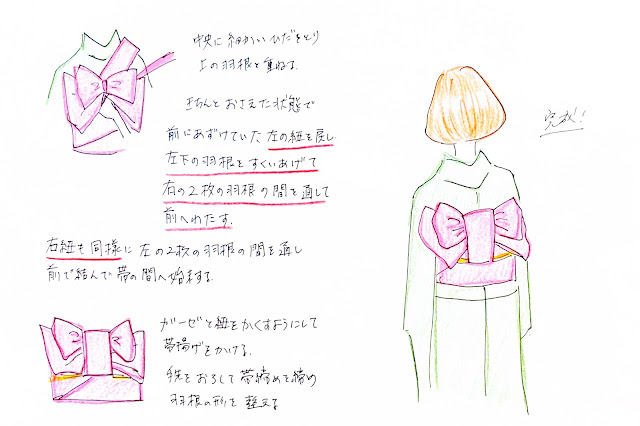 中央に細かいひだをとり
上の羽根と重ねる.
きちんとおさえた状態で
前にあずけていた左の紐を戻し
左下の羽根をすくいあげて
右の2枚の羽根の間を通して
前へわたす.
右紐も同様に左の2枚の羽根の間を通し
前で結んで帯の間へ始末する.
ガーゼと紐をかくすようにして
帯揚げをかける.
手先をおろして帯締めを締め
羽根の形を整える
完成!